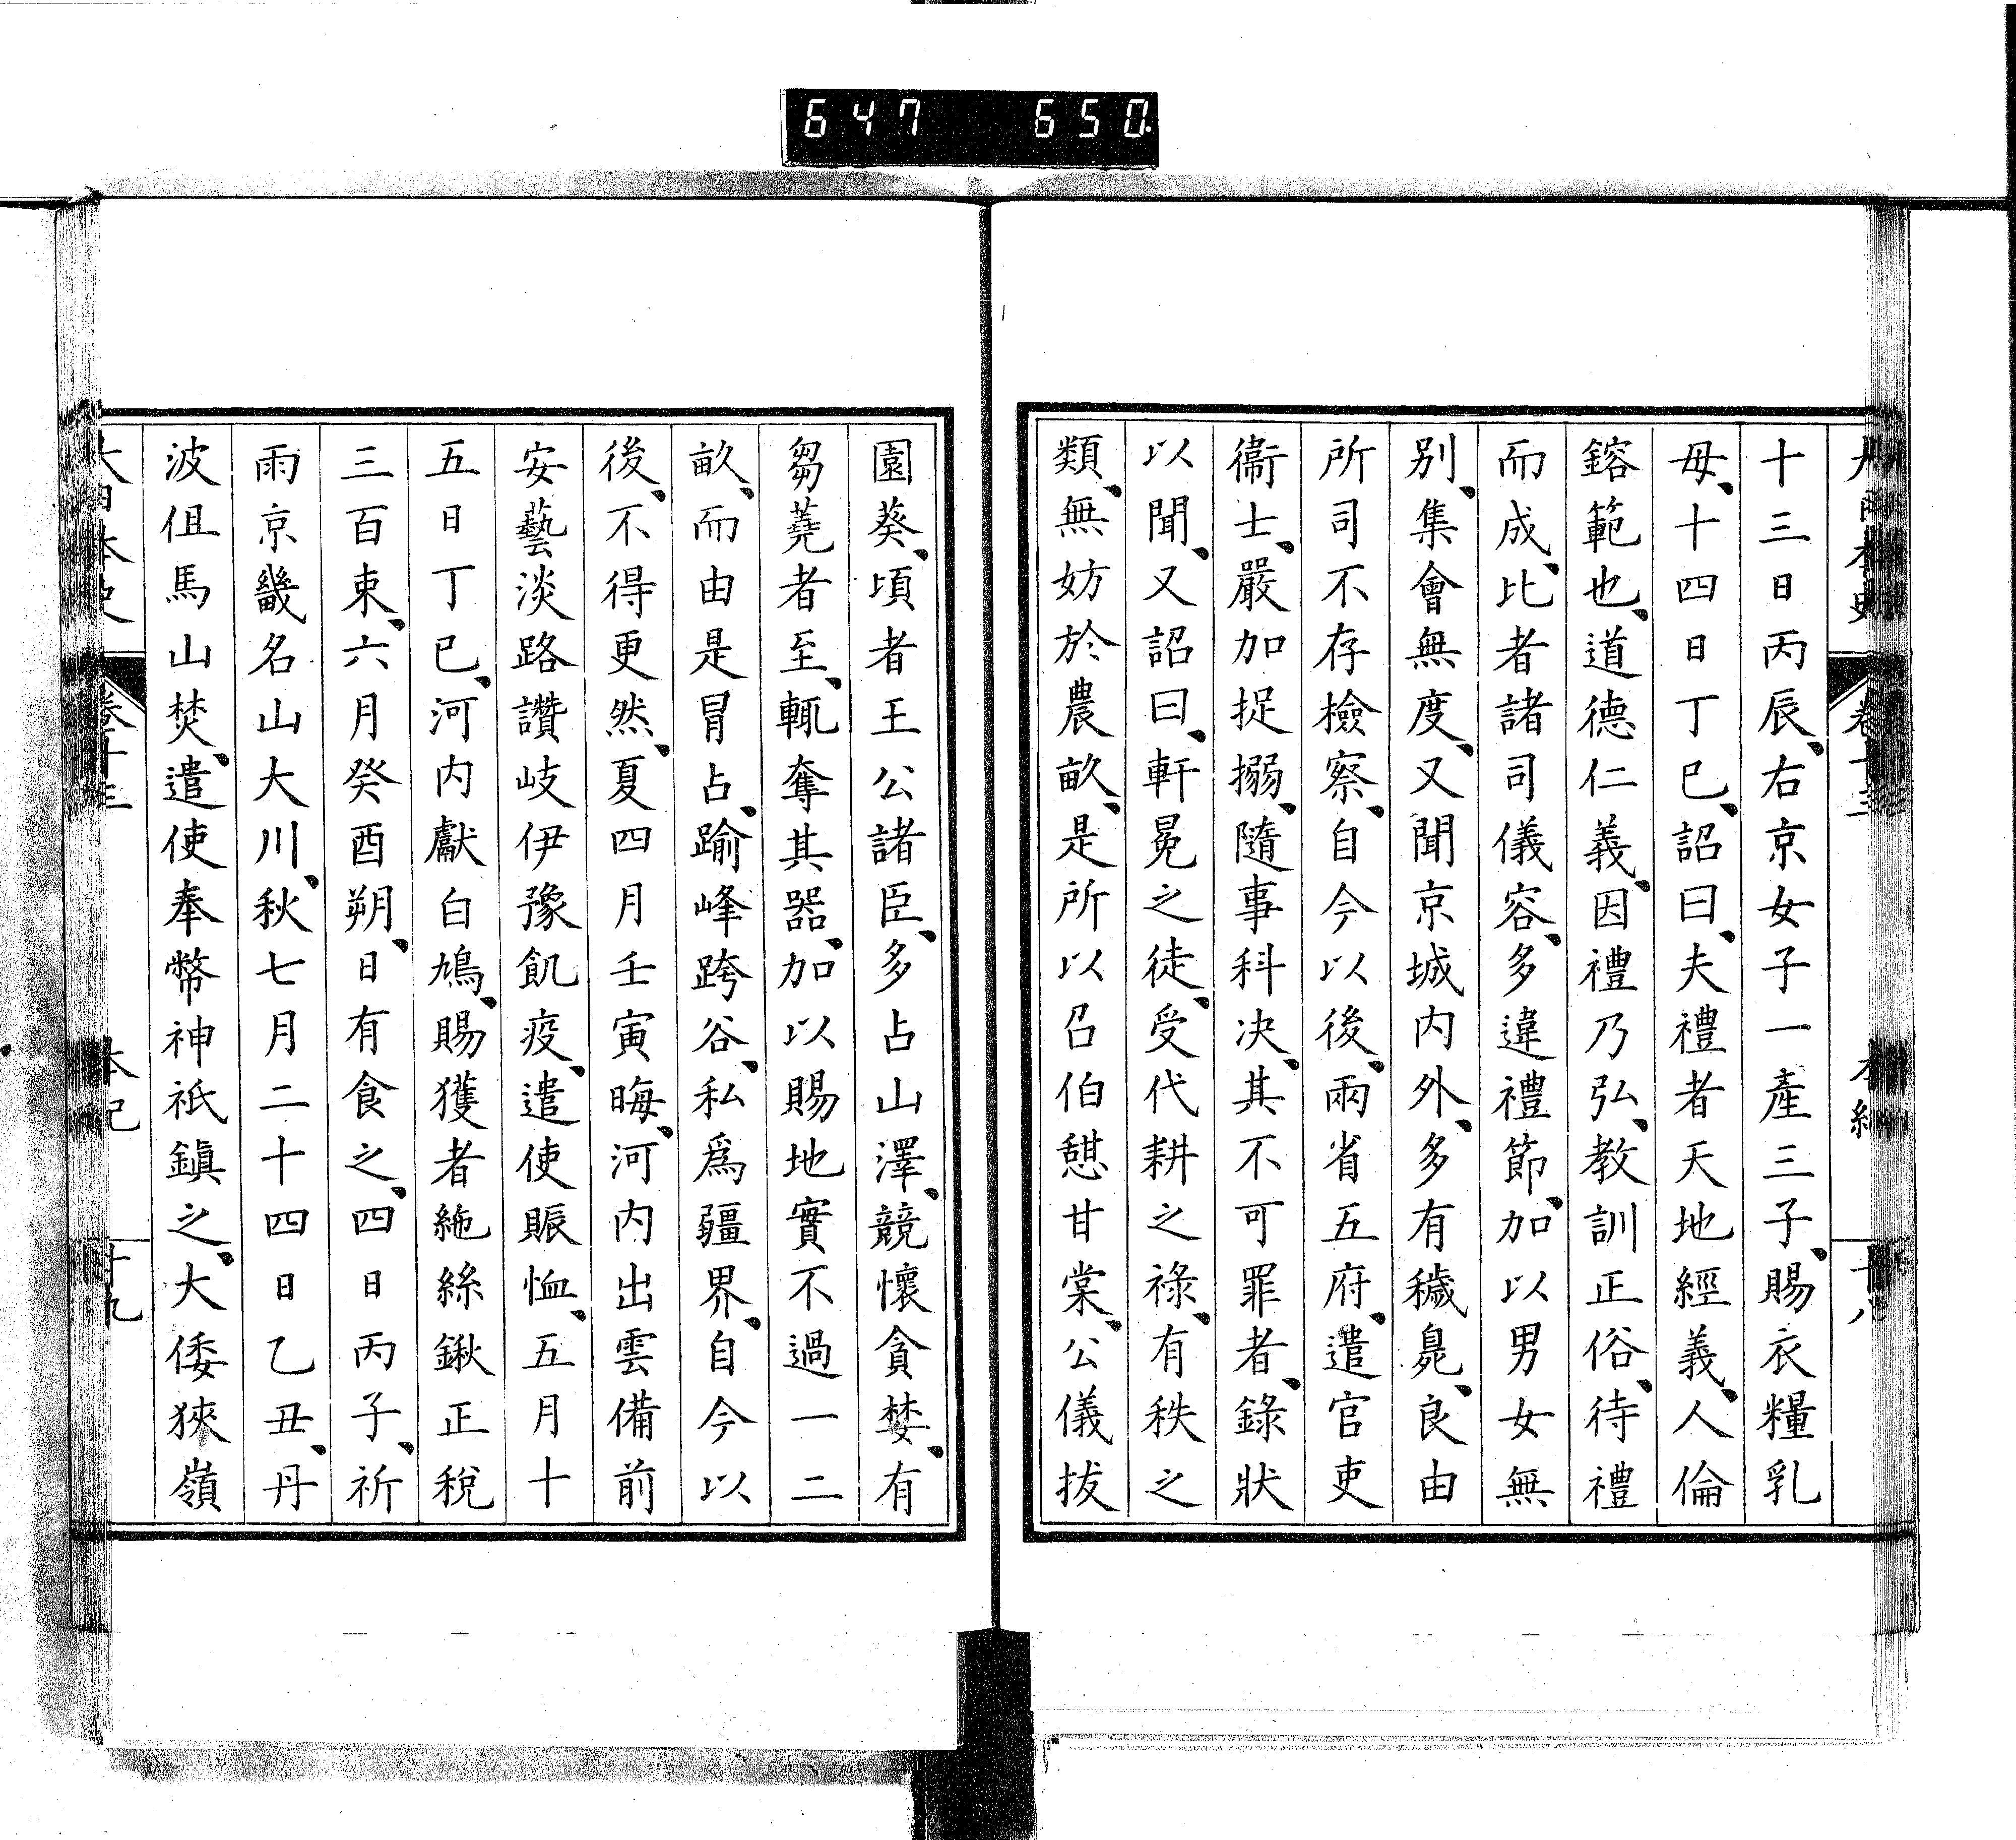 647 650.
大日本史 卷十三 本紀 十八
十三日丙辰、右京女子一產三子、賜衣糧乳
母、十四日丁巳、詔曰、夫禮者天地經義、人倫
鎔範也、道德仁義、因禮乃弘、教訓正俗、待禮
而成、比者諸司儀容、多違禮節、加以男女無
別、集會無度、又聞京城内外、多有穢臰、良由
所司不存檢察、自今以後、兩省五府、遣官吏
衞士、嚴加捉搦、隨事科決、其不可罪者、錄狀
以聞、又詔曰、軒冕之徒、受代耕之祿、有秩之
類、無妨於農畝、是所以召伯憇甘棠、公儀拔
園葵、頃者王公諸臣、多占山澤、競懷貪婪、有
芻蕘者至、輒奪其器、加以賜地實不過一二
畝、而由是冐占、踰峰跨谷、私爲疆界、自今以
後、不得更然、夏四月壬寅晦、河内出雲備前
安藝淡路讚岐伊豫飢疫、遣使賑恤、五月十
五日丁巳、河内獻白鳩、賜獲者絁絲鍬正稅
三百束、六月癸酉朔、日有食之、四日丙子、祈
雨京畿名山大川、秋七月二十四日乙丑、丹
波伹馬山焚、遣使奉幣神祇鎭之、大倭狹嶺
大日本史 卷十三 本紀 十九